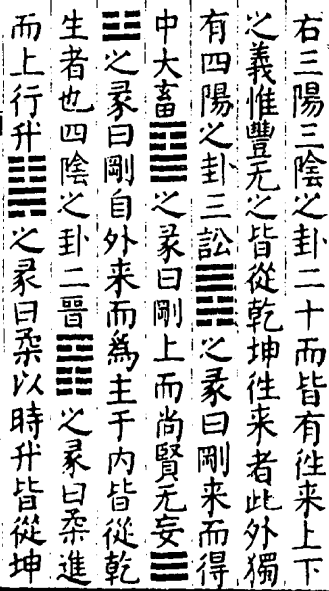 右三陽三陰之卦二十而皆有徃来上下
之義惟豐无之皆從乾坤徃来者此外獨
有四陽之卦三訟䷅之彖曰剛来而得
中大畜䷙之彖曰剛上而尚賢无妄☰
☳之彖曰剛自外来而為主于内皆從乾
生者也四陰之卦二晋䷢之彖曰柔進
而上行升䷭之彖曰柔以時升皆從坤